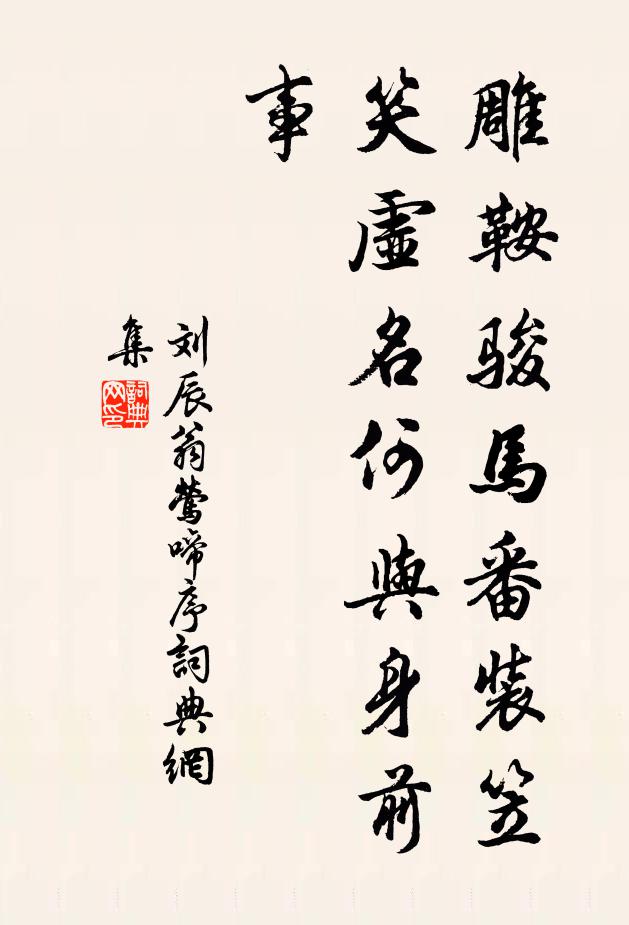 雕鞍骏馬番裝笠
笑虛名何與身前
事
刘辰翁鶯啼序詞典網
集
詞典網印